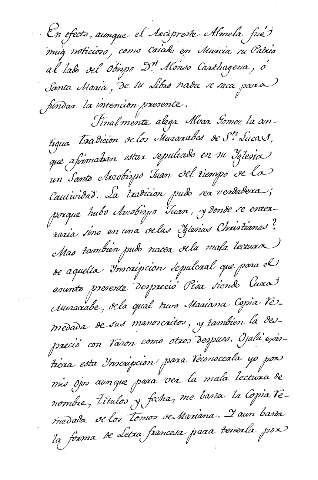 En efecto, aunque el Arcipreste Almela fué
muy noticioso, como criado en Murcia su Patria
al lado del Obispo Dn. Alonso Carthagena, ó
Santa Maria, de su Libro nada se saca para
fundar la intencion presente.
Finalmente alega Alvar Gomez la an-
tigua Tradicion de los Muzarabes de Sn. Lucas,
que afirmaban estar sepultado en su Iglesia
un Santo Arzobispo Juan del tiempo de la
Cautividad. La tradicion pudo ser verdadera;
porque hubo Arzobispo Juan, y donde se enter-
raria sino en una de las Iglesias Christianas?
Mas tambien pudo nacer de la mala lectura
de aquella Inscripcion sepulcral que para el
asunto presente despreció Pisa siendo Cura
Muzarabe, de la qual tuvo Mariana Copia re-
medada de sus manuscritos, y tambien la des-
preció con razon como otros despues. Ojalá exis-
tiera esta Inscripcion para reconocerla yo por
mis ojos aunque para ver la mala lectura de
nombre, titulos y fecha, me basta la Copia re-
medada de los Tomos de Mariana. Y aun basta
la forma de Letra francesa para tenerla por